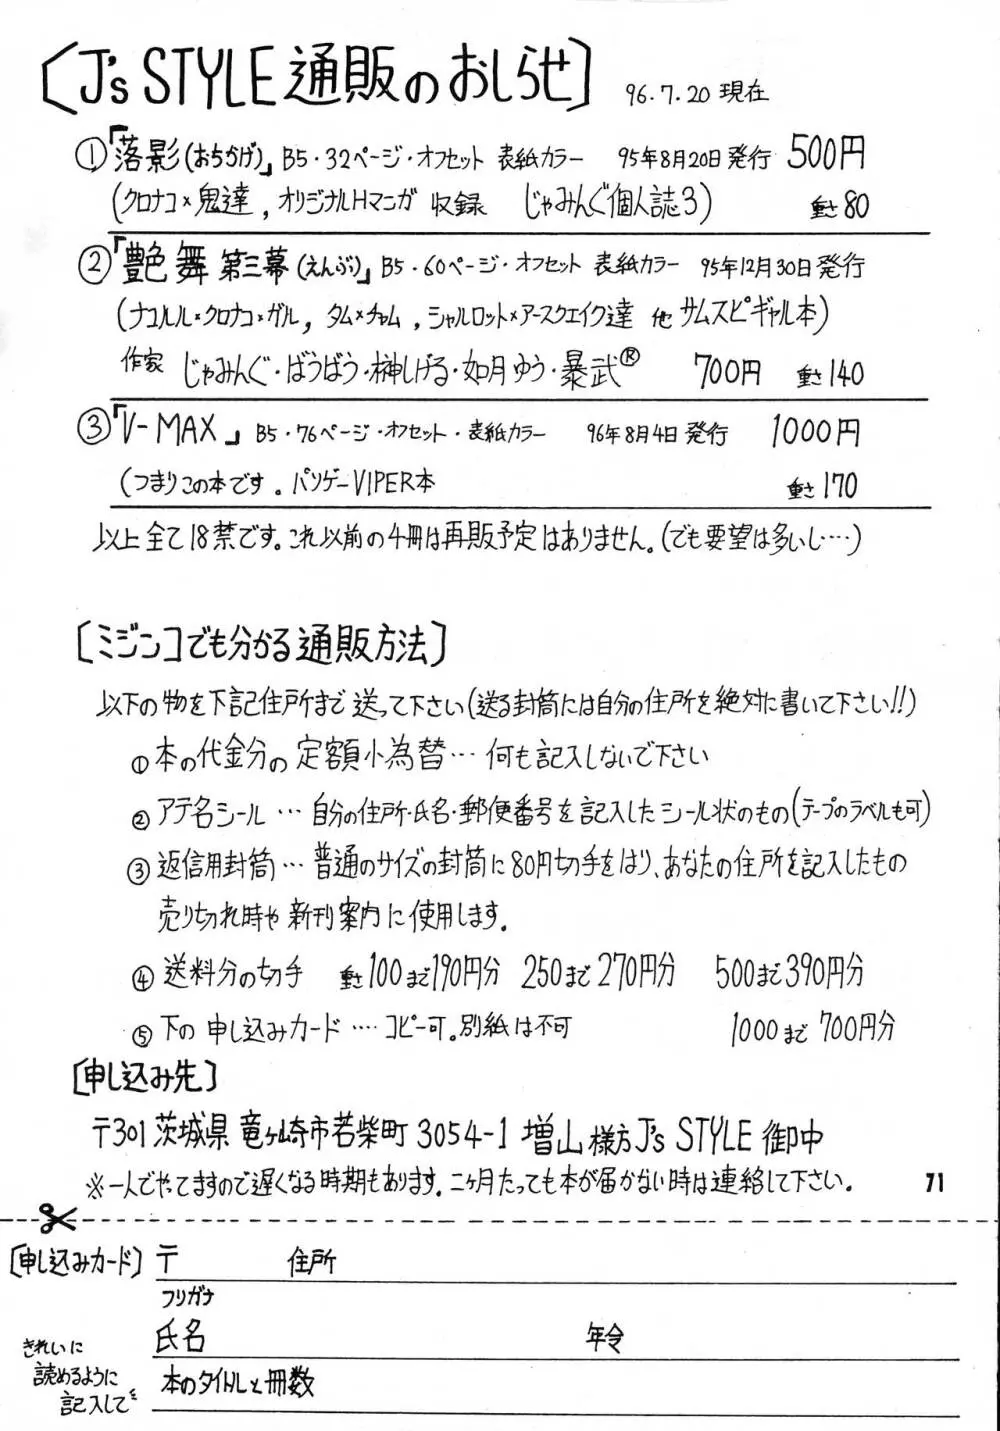 〔J's STYLE 通販のおしらせ〕 96.7.20 現在
①「落影(おちかげ)」B5・32ページ・オフセット 表紙カラー 95年8月20日発行 500円
(クロナコ×鬼達, オリジナルHマンガ 収録 じゃみんぐ個人誌3) 重さ80
②「艶舞 第三幕(えんぶ)」B5・60ページ・オフセット 表紙カラー 95年12月30日発行
(ナコルル×クロナコ×ガル, タム×チャム, シャルロット×アースクエイク達 他 サムスピギャル本)
作家 じゃみんぐ・ばうばう・榊しげる・如月ゆう・暴武® 700円 重さ140
③「V-MAX」B5・76ページ・オフセット・表紙カラー 96年8月4日発行 1000円
(つまりこの本です。パソゲーVIPER本 重さ170
以上全て18禁です。これ以前の4冊は再販予定はありません。(でも要望は多いし‥‥)
〔ミジンコでも分かる通販方法〕
以下の物を下記住所まで送って下さい(送る封筒には自分の住所を絶対に書いて下さい!!)
①本の代金分の定額小為替… 何も記入しないで下さい
②アテ名シール … 自分の住所・氏名・郵便番号を記入したシール状のもの(テープのラベルも可)
③返信用封筒… 普通のサイズの封筒に80円切手をはり、あなたの住所を記入したもの
売り切れ時や新刊案内に使用します。
④送料分の切手 重さ100まで190円分 250まで270円分 500まで390円分
⑤下の申し込みカード ‥‥ コピー可。別紙は不可 1000まで700円分
〔申し込み先〕
〒301 茨城県竜ヶ崎市若柴町3054-1 増山様方J's STYLE 御中
※一人でやってますので遅くなる時期もあります。二ヶ月たっても本が届かない時は連絡して下さい。 71
〔申し込みカード〕 〒 住所
フリガナ
氏名 年令
きれいに
読めるように
記入してミ
本のタイトルと冊数